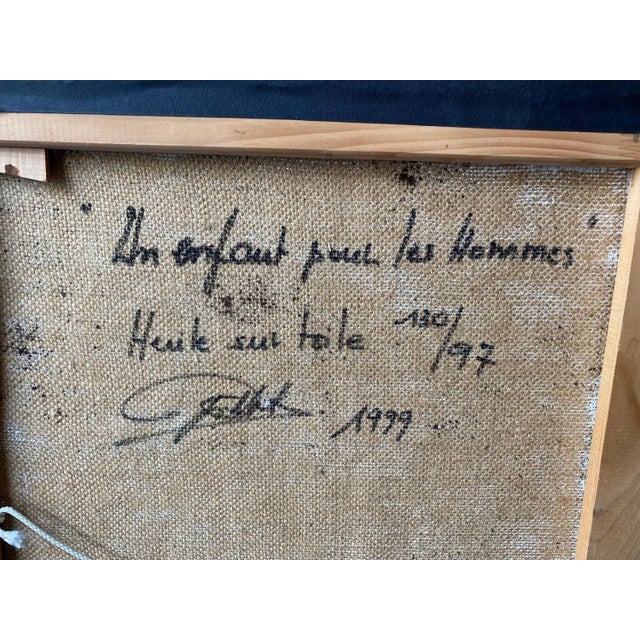 "Un enfant pour les Hommes"
Huile sur toile 130/97
1999